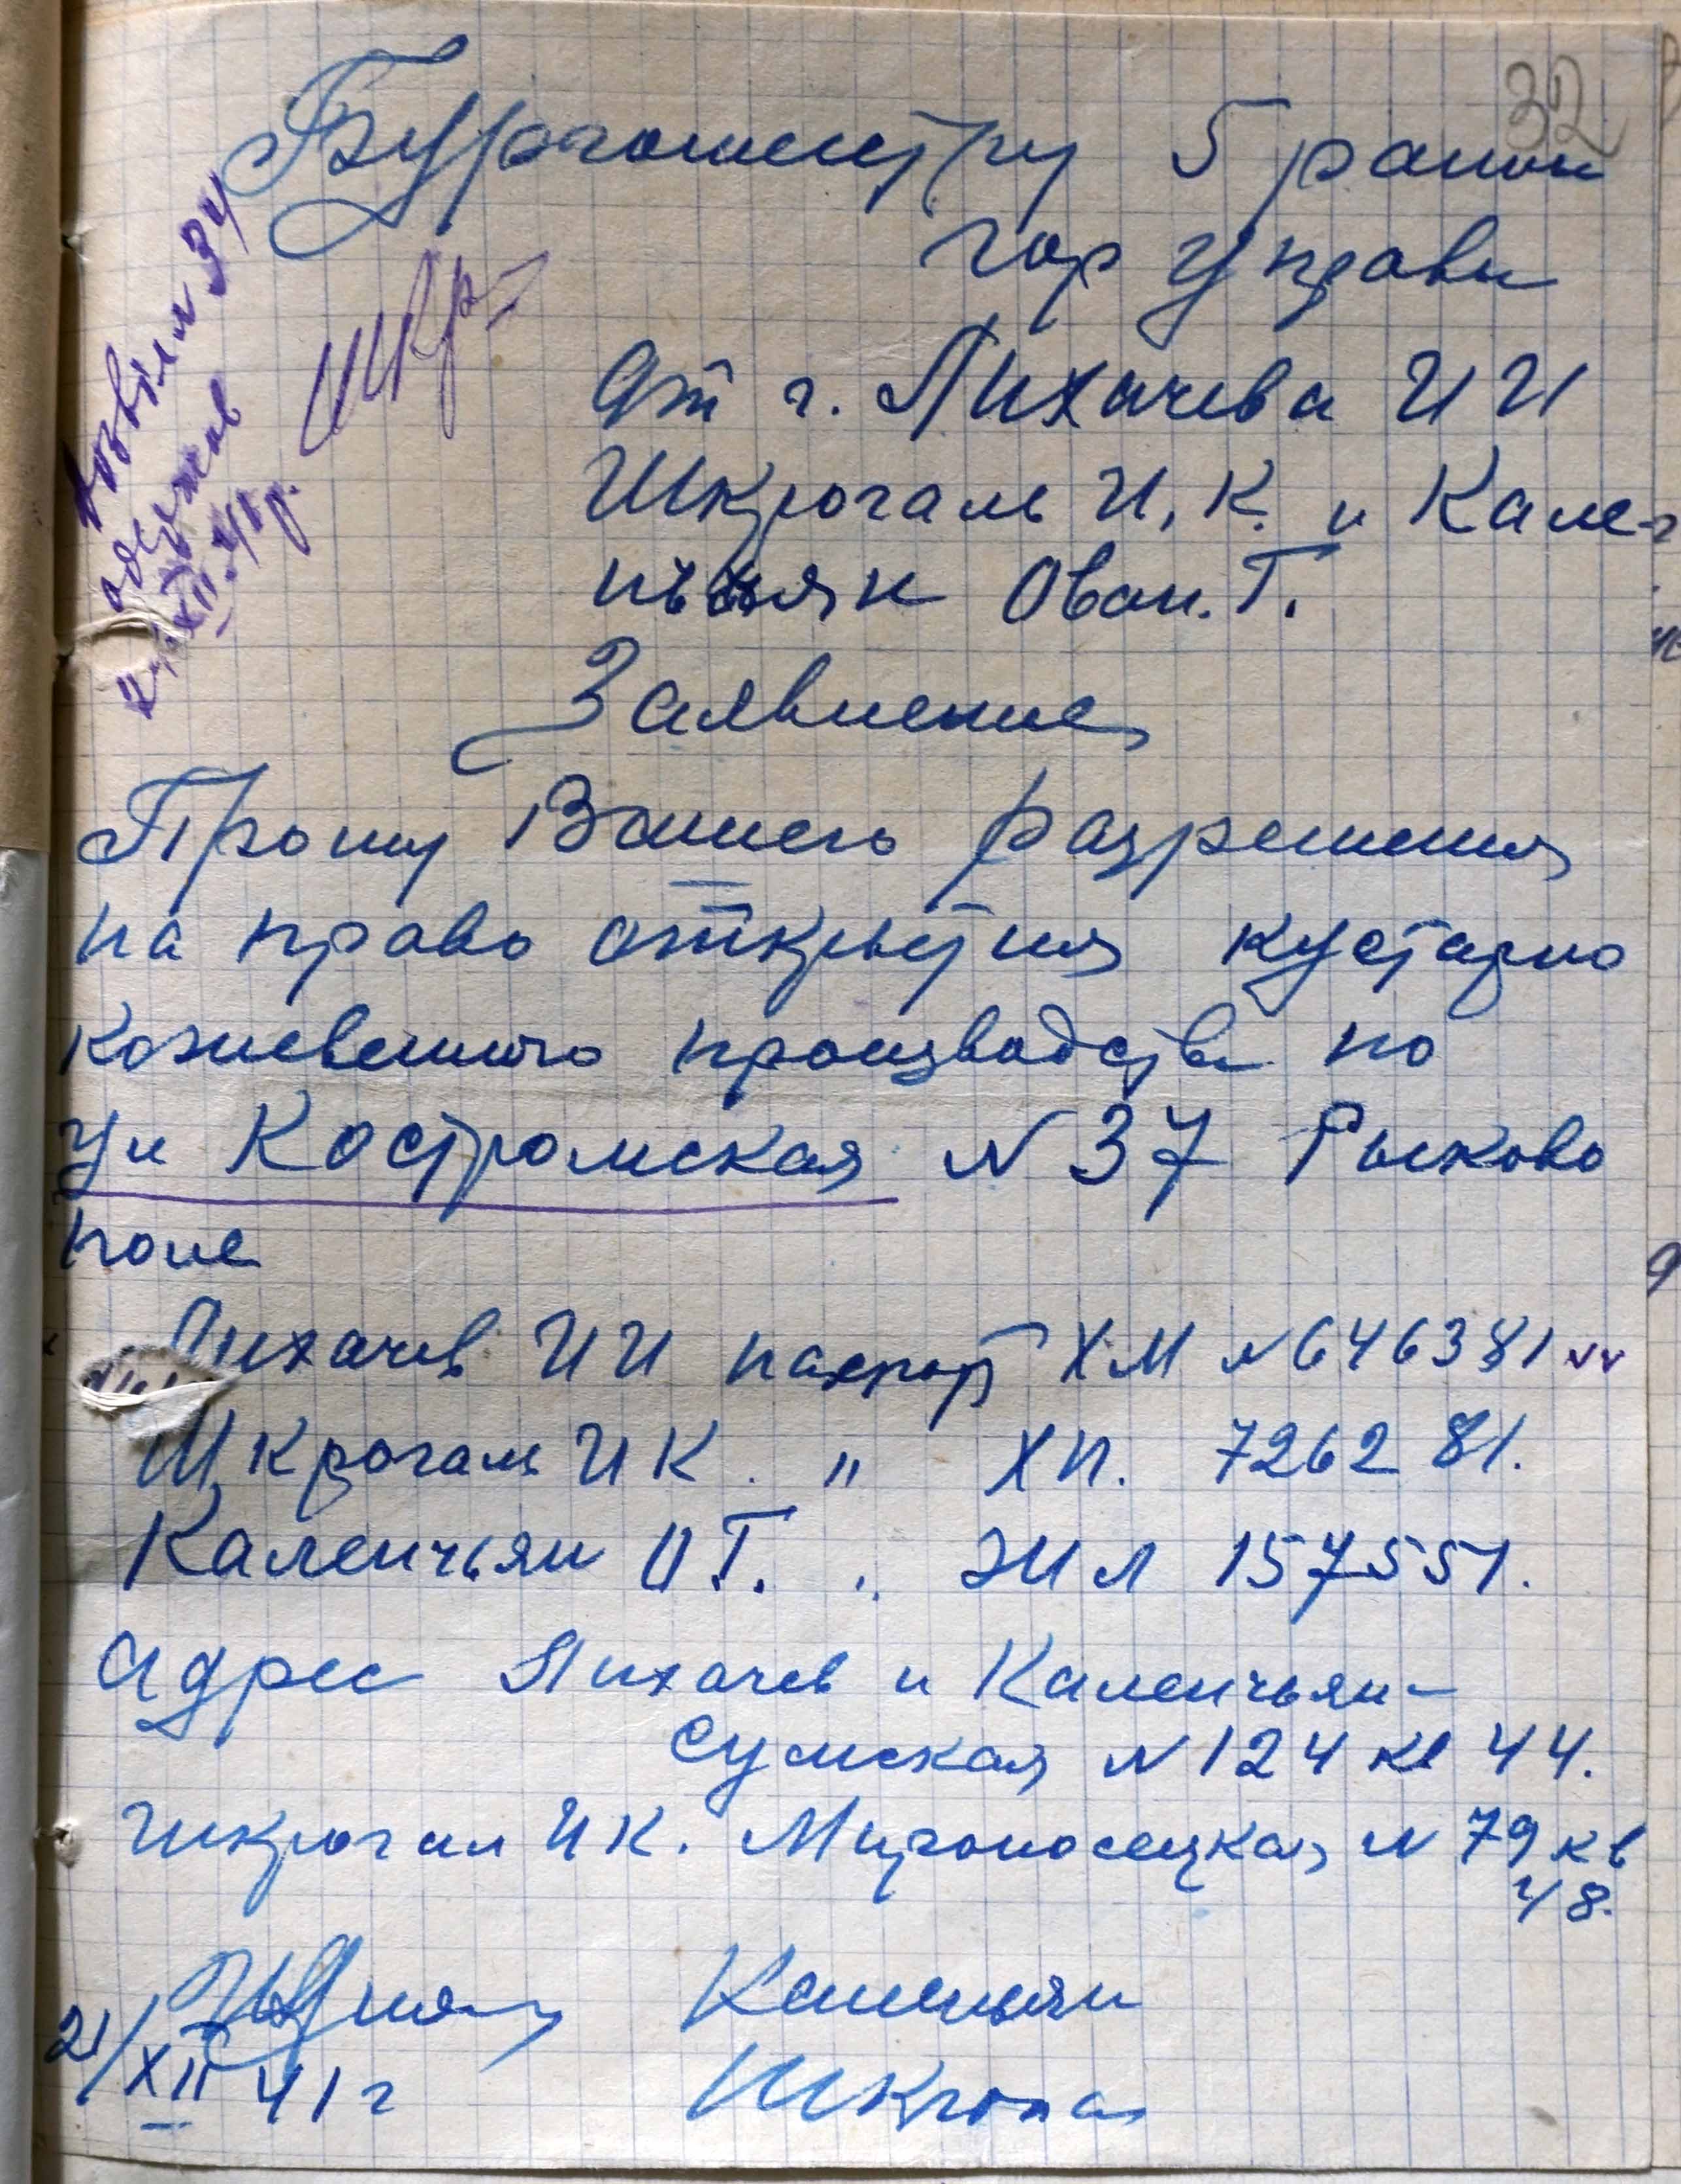 32
Бургомистру 5 район
Гор Управы
От г. Лихачева И И
Шкрогаль И. К. и Кале-
нчьян Ован. Г.
Заявление
Прошу Вашего разрешения
на право открытия кустарно
кожевенного производства по
ул Костромская N 37 Рыжово
поле
Дозвіл 34
одержав
XII. 41 р.
Шкр
Лихачев И И паспорт ХМ N 646381
Шкрогаль И К. " ХП. 726281.
Каленчьян О Г. " ЖИЛ 157551.
Адрес Лихачев и Каленчьян-
Сумская N 124 кв 44.
Шкрогал И К. Мироносецкая N 79 кв
48.
Каленчьян
21/XII 41 г
Шкрога